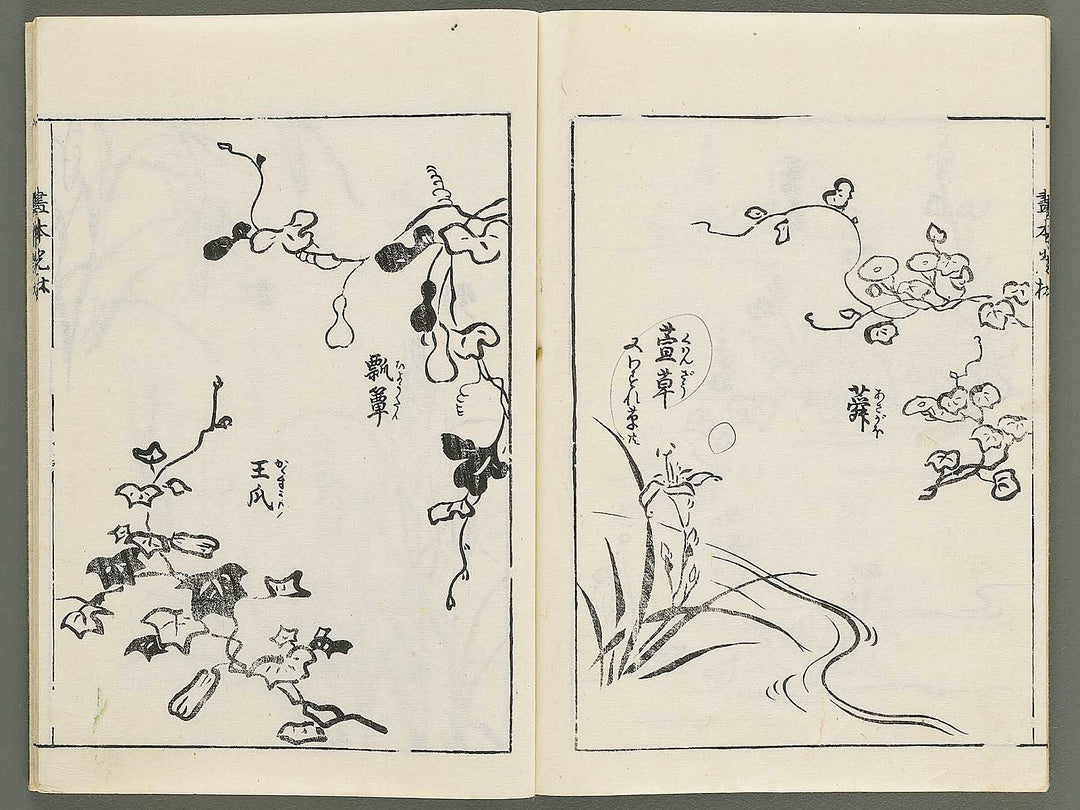 畫本光林
蕣
あさがほ
萱草
くわんざう
又わすれ草共
瓢簞
ひようたん
王瓜
からすうり
畫本光林